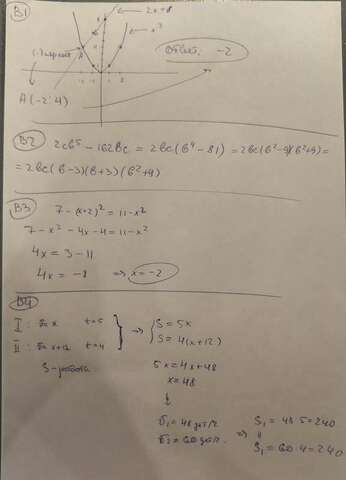 B1
2x+8
x²
Ответ: -2
A(-2; 4)
B2 2cb⁵ - 162bc = 2bc(b⁴ - 81) = 2bc(b²-9)(b²+9) =
= 2bc(b-3)(b+3)(b²+9)
B3 7-(x+2)² = 11-x²
7-x²-4x-4 = 11-x²
4x = 3-11
4x = -8 ⇒ x = -2
B4
I : x t=5
II : x+12 t=4
S-работа
⇒ { S = 5x
S = 4(x+12)
5x = 4x+48
x = 48
↓
= 48
= 60
⇒ S₁ = 48·5 = 240
"
S₁ = 60·4 = 240